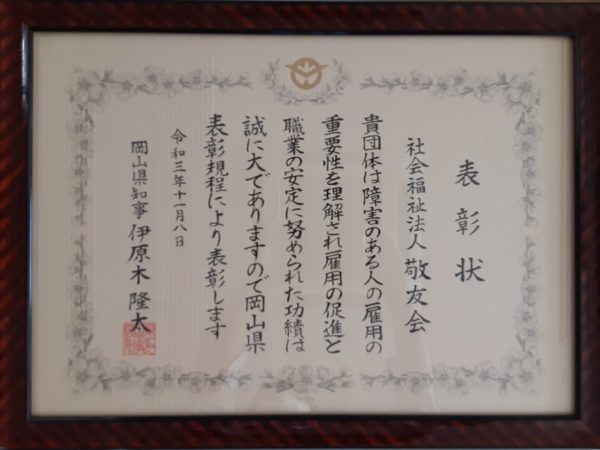 表彰状
社会福祉法人 敬友会
貴団体は障害のある人の雇用の
重要性を理解され雇用の促進と
職業の安定に努められた功績は
誠に大でありますので岡山県
表彰規程により表彰します
令和三年十一月八日
岡山県知事 伊原木 隆太